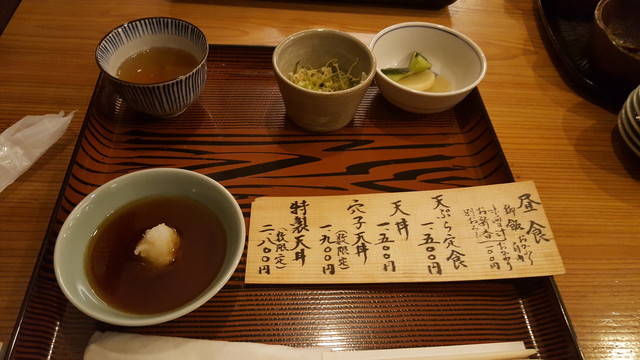 昼食
御飯
お新香 一〇〇円
天ぷら定食
一、五〇〇円
天丼
一、五〇〇円
穴子天丼
(数限定)
一、九〇〇円
特製天丼
(数限定)
二、八〇〇円